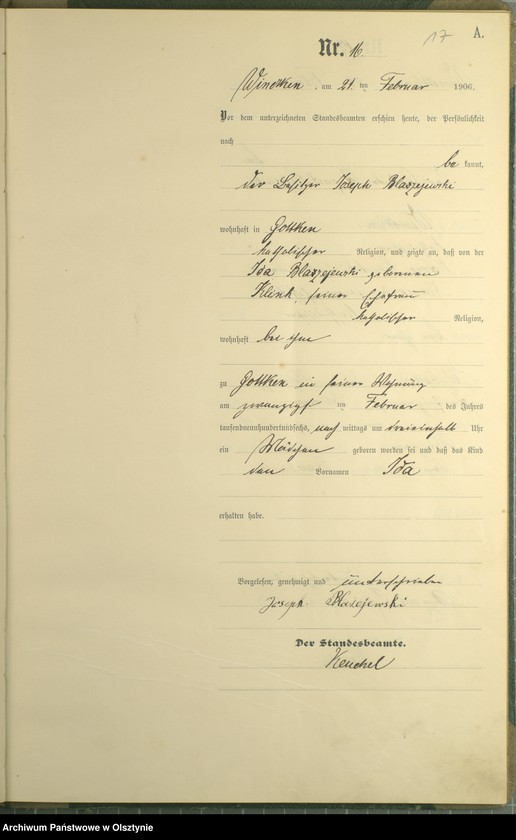 17
A.
Nr. 16
am 21 ten Februar 1906.
Vor dem unterzeichneten Standesbeamten erschien heute, der Persönlichkeit
nach
be kannt,
der Besitzer Joseph Blaszejewski
wohnhaft in Gottken
katholischer Religion, und zeigte an, daß von der
Ida Blaszejewski geborenen
Klink, seiner Ehefrau
katholischer Religion,
wohnhaft bei ihm
zu Gottken in seiner Wohnung
am zwanzigsten Februar des Jahres
tausendneunhundertundsechs, nach mittags um Uhr
ein Mädchen geboren worden sei und daß das Kind
den Vornamen Ida
erhalten habe.
Vorgelesen, genehmigt und unterschrieben
Joseph Blazejewski
Der Standesbeamte.
Archiwum Państwowe w Olsztynie